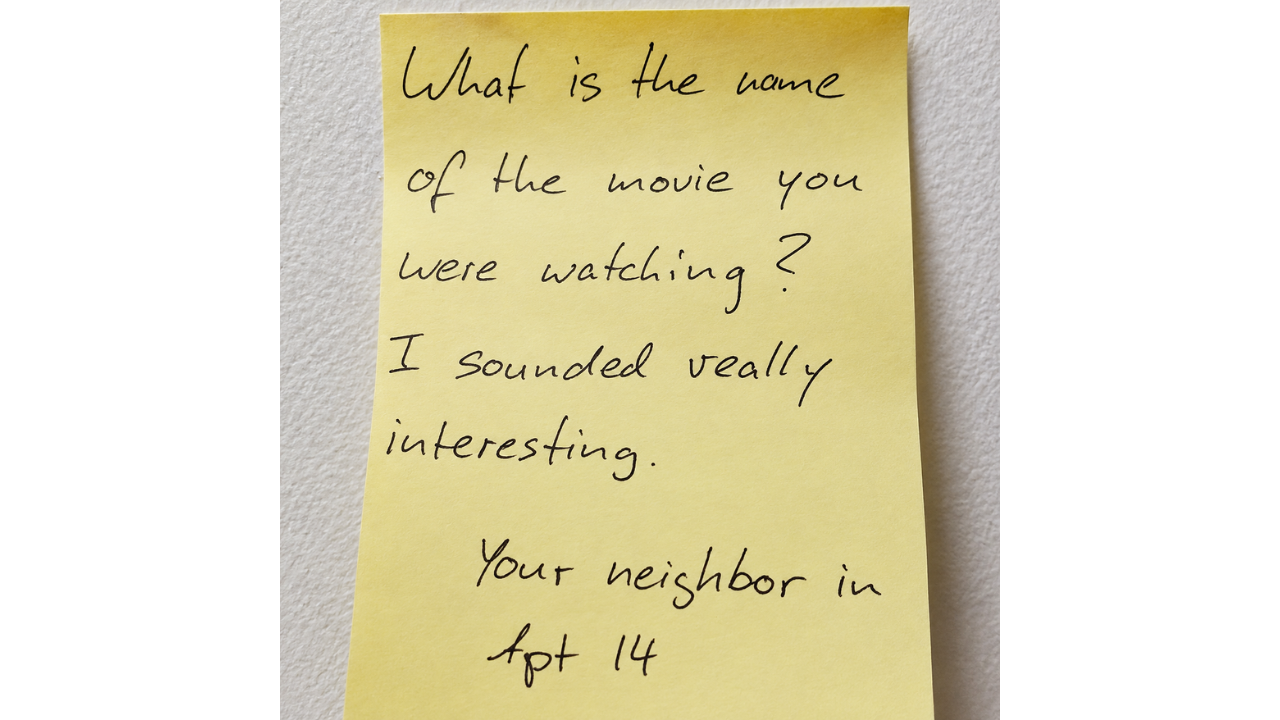 What is the name
of the movie you
were watching?
I sounded really
interesting.
Your neighbor in
Apt 14